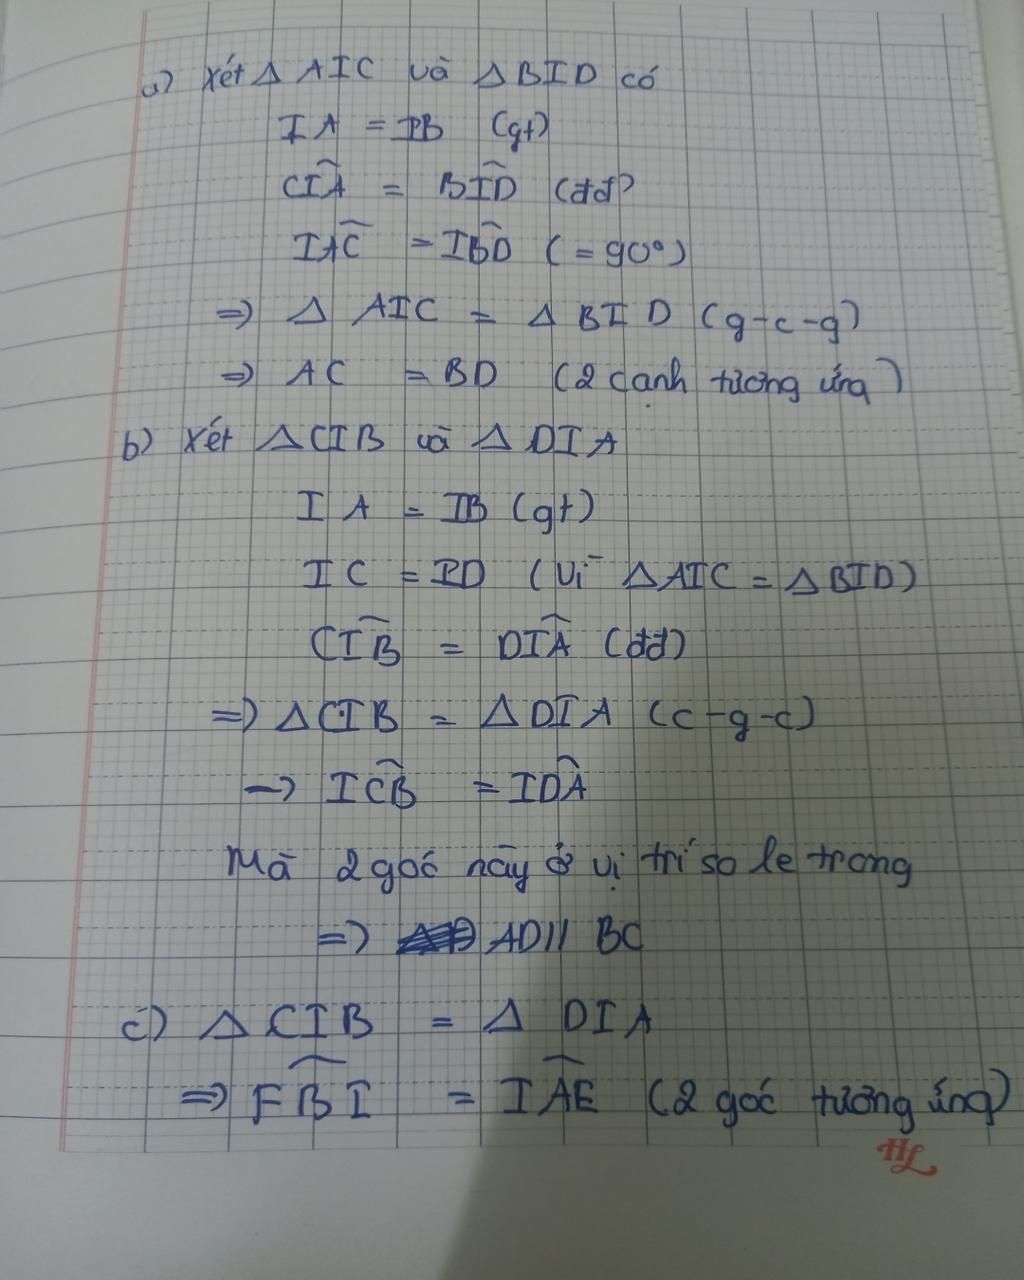 a) Xét Δ AIC và Δ BID có
IA = IB (gt)
CÎA = BÎD (đđ)
IÂC = IB̂D (= 90°)
=> Δ AIC = Δ BID (g-c-g)
=> AC = BD (2 cạnh tương ứng)
b) Xét ΔCIB và Δ DIA
IA = IB (gt)
IC = ID (Vì ΔAIC = ΔBID)
CÎB = DÎA (đđ)
=> ΔCIB = ΔDIA (c-g-c)
→ IĈB = ID̂A
Mà 2 góc này ở vị trí so le trong
=> AD // BC
c) Δ CIB = Δ DIA
=> FB̂I = IÂE (2 góc tương ứng)
HL